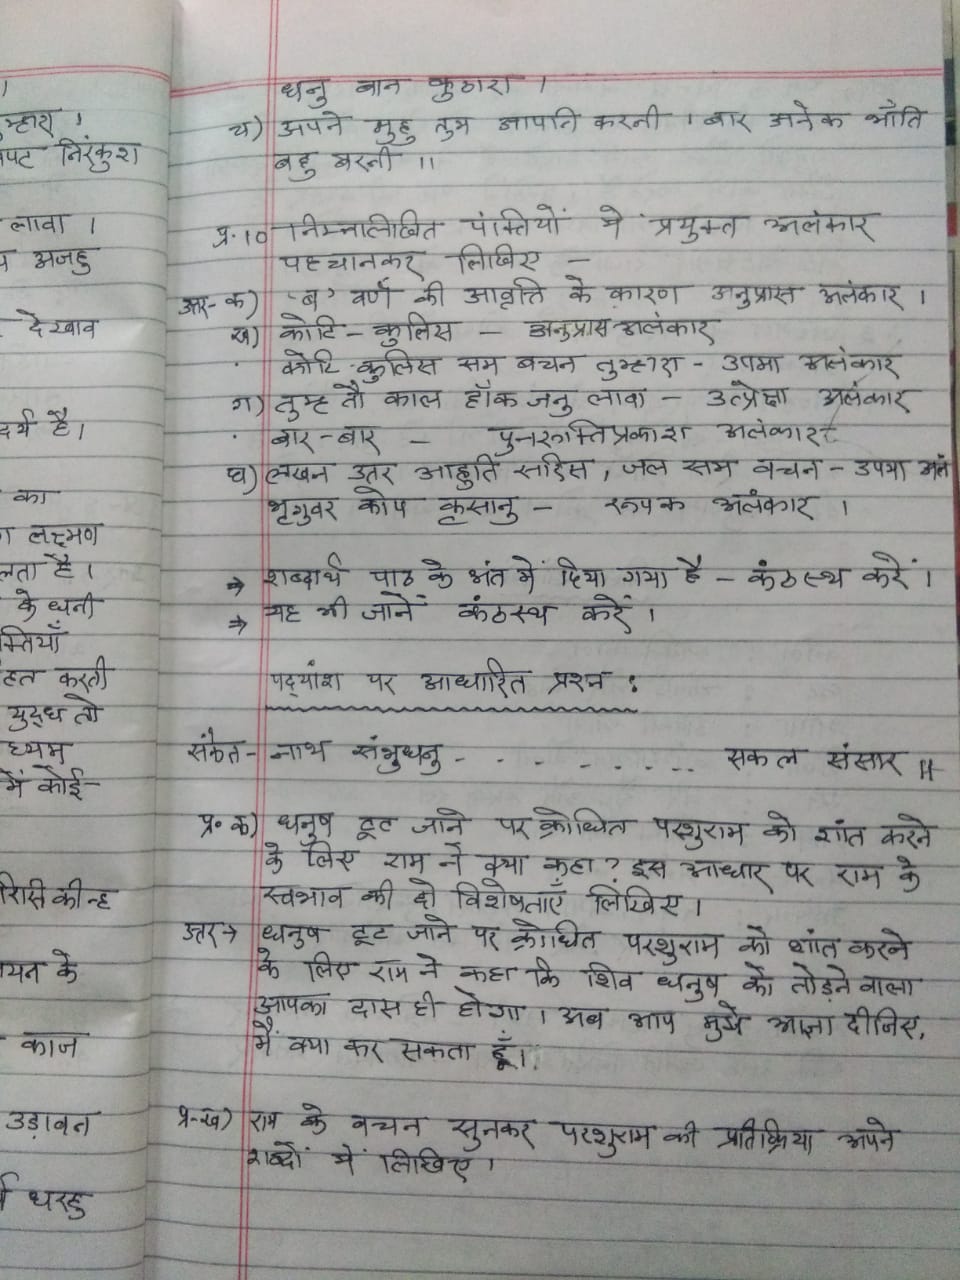 ।
म्हारा ।
पट निरंकुश
लावा ।
अजहु
देखाव
दर्य है।
का
लक्ष्मण
लता है।
के धनी
क्तियाँ
हत करती
युद्ध तो
ध्यम
में कोई-
रिसि कीन्ह
यन के
काज
उड़ावन
धरहु
धनु बान कुठारा ।
च) अपने मुहु तुम आपनि करनी । बार अनेक भाँति
बहु बरनी ।।
प्र.10 निम्नलिखित पंक्तियों में प्रयुक्त अलंकार
पहचानकर लिखिए -
उत्तर- क) 'ब' वर्ण की आवृत्ति के कारण अनुप्रास अलंकार ।
ख) कोटि - कुलिस - अनुप्रास अलंकार
कोटि कुलिस सम बचन तुम्हारा - उपमा अलंकार
ग) तुम्ह तौ काल हाँक जनु लावा - उत्प्रेक्षा अलंकार
बार-बार - पुनरुक्तिप्रकाश अलंकार
घ) लखन उतर आहुति सरिस, जल सम वचन - उपमा अलं
भृगुवर कोप कृसानु - रूपक अलंकार ।
⇒ शब्दार्थ पाठ के अंत में दिया गया है - कंठस्थ करें ।
⇒ यह भी जानें कंठस्थ करें ।
पद्यांश पर आधारित प्रश्न :
संकेत- नाथ संभुधनु - - - - - - - - सकल संसार ॥
प्र. क) धनुष टूट जाने पर क्रोधित परशुराम को शांत करने
के लिए राम ने क्या कहा ? इस आधार पर राम के
स्वभाव की दो विशेषताएँ लिखिए ।
उत्तर → धनुष टूट जाने पर क्रोधित परशुराम को शांत करने
के लिए राम ने कहा कि शिव धनुष को तोड़ने वाला
आपका दास ही होगा । अब आप मुझे आज्ञा दीजिए,
मैं क्या कर सकता हूँ।
प्र-ख) राम के वचन सुनकर परशुराम की प्रतिक्रिया अपने
शब्दों में लिखिए ।